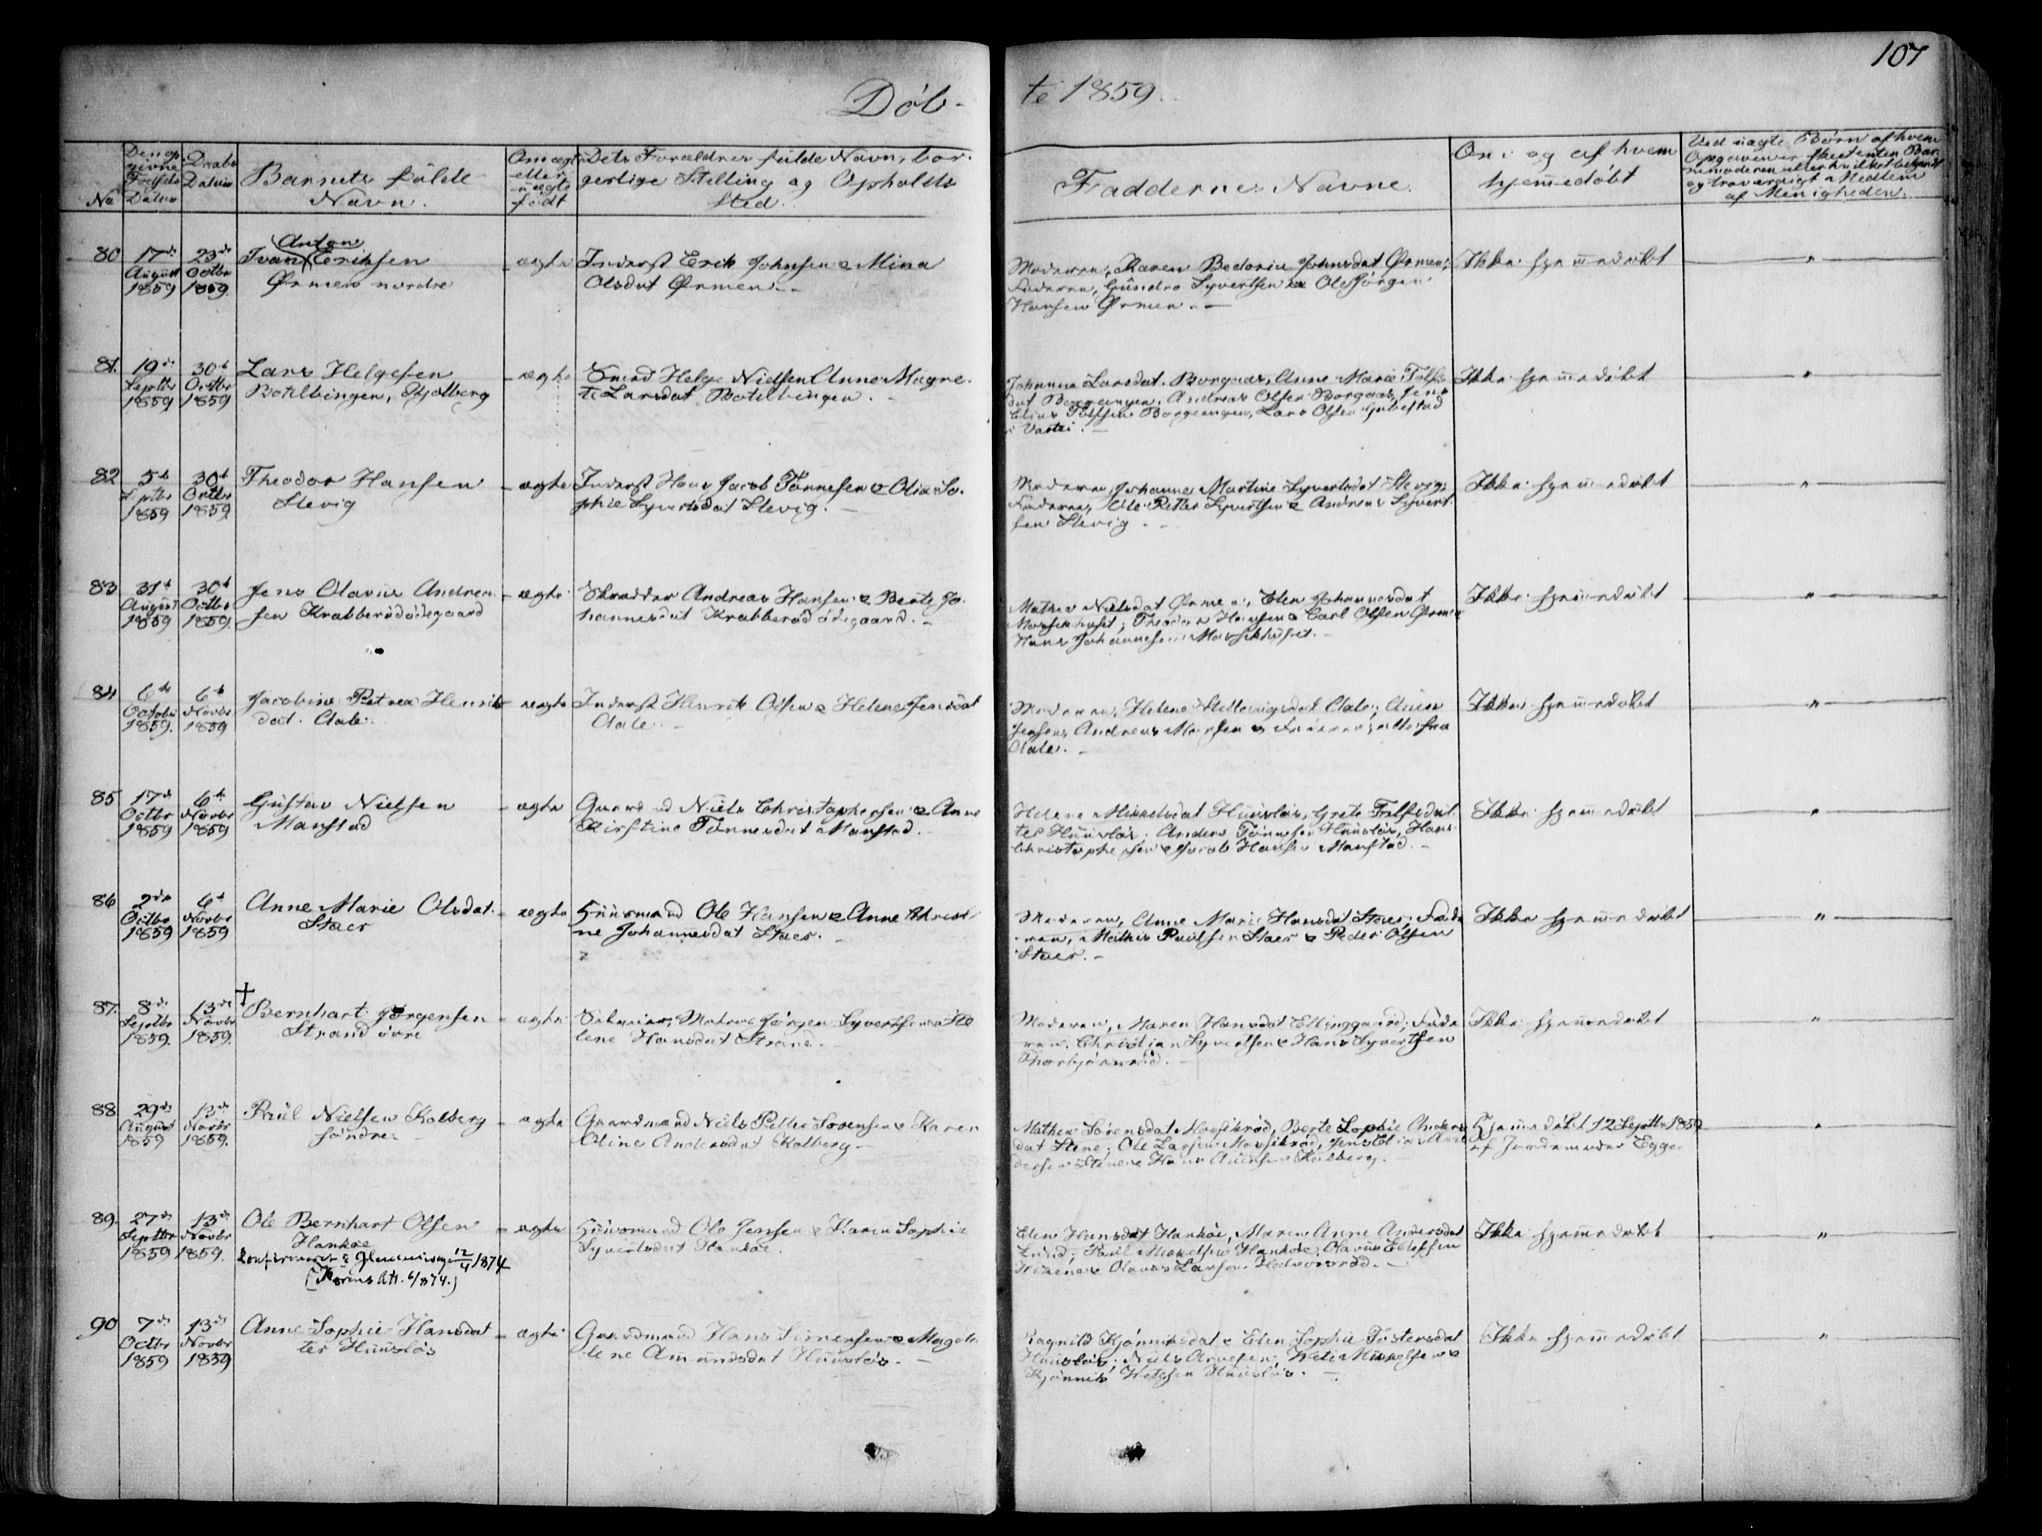 107
Døb-
te 1859.
No
Den op
givne
Fødsels
Datum
Daabs
Datum
Barnets fulde
Navn.
Om ægte
eller
uægte
født
Dets Forældres fulde Navn, bor-
gerlige Stilling og Opholds
Sted.
Faddernes Navne.
Om og af hvem
hjemmedøbt
Ved uægte Børn af hvem
Opgaven er skeet enten Bar-
nemoderen eller hvilket bekjendt
og troværdigt Medlem
af Menigheden.
80
17de
August
1859
23de
Octbr
1859.
Anton
Ivan Eriksen
Ørmen nordre
ægte
Inderst Erik Johnsen & Mina
Olsdat Ørmen.
Moderen, Karen Bedorin Johnsdat Ørmen;
Faderen, Gundro Syvertsen & Ole Jørgen
Hansen Ørmen.
Ikke hjemmedøbt
"
81.
19de
Septbr
1859
30d
Octbr
1859
Lars Helgesen
ægte
Smed Helge Nielsen Anne Magre-
te Larsdat
Johanna Larsdat. Borgaas, Anne Marie
dat Borgeengen, Andreas Olsen Borgaas, Jens
Borgeengen, Lars Olsen
Ikke hjemmedøbt
"
82
5d
Septbr
1859
30d
Octbr
1859
Theodor Hansen
Slevig
ægte
Inderst Hans Jacob Tønnesen & Olia So-
phie Syvertsdat Slevig.
Moderen, Johanne Martine Syvertsdat Slevig;
Faderen, Ole Petter Syvertsen & Andreas Syvert
sen Slevig
Ikke hjemmedøbt
"
83
31d
August
1859
30d
Octbr
1859.
Jens Olavus Andrea-
sen Krabberødødegaard
ægte
Skrædder Andreas Hansen & Berte Jo-
hannesdat Krabberødødegaard.
Mathea Nielsdat Ørmen, Elen Johannesdat
Theodor Hansen & Carl Olsen Ørmen
Hans Johannesen
Ikke hjemmedøbt
"
84
6de
October
1859.
6d
Novbr
1859
Jacobine Petrea Henriks
dat. Aale.
ægte
Inderst Henrik Olsen & Helene Jensdat
Aale.
Moderen, Helene Aale;
Jensen, Andreas & Faderen; alle fra
Aale.
Ikke hjemmedøbt
"
85
17d
Octbr
1859
6d
Novbr
1859
Gustav Nielsen
Manstad
ægte
Gaardmd Niels Christophersen & Anne
Kirstine Tønnesdat Manstad.
Helene Mikkelsdat Huusløs, Grete
ter Huusløs, Anders Tønnesen Huusløs, Hans
Christophersen & Jacob Hansen Manstad.
Ikke hjemmedøbt
"
86
2den
Octbr
1859
6d
Novbr
1859
Anne Marie Olsdat.
Staer
ægte
Huusmand Ole Hansen & Anne Christi-
ne Johannesdat Staer.
Moderen, Anne Marie Hansdat Staer; Fade
ren, Mathis Paulsen Staer & Peder Olsen
Staer.
Ikke hjemmedøbt
"
87.
8de
Septbr
1859.
13de
Novbr
1859.
†
Bernhart Jørgensen
Strand øvre
ægte
Selveier, Matros Jørgen Syvertsen & He
lene Hansdat Strand.
Moderen, Maren Hansdat Ellinggaard; Fade
ren, Christian Syvertsen & Hans Syvertsen
Thorbjørnrød.
Ikke hjemmedøbt
"
88
29de
August
1859
13de
Novbr
1859.
Paul Nielsen Kolberg
søndre
ægte
Gaardmand Niels Petter Sørensen & Karen
Oline Andersdat Kolberg
Mathea Sørensdat Berte Sophie Anders
dat Stene; Ole Larsen
Stene & Hans Kolberg.
Hjemmedøbt 12 Septbr 1859
af Jordemoder Egge
"
89.
27de
Septbr
1859
13de
Novbr
1859.
Ole Bernhart Olsen
Hankøe
Konfirmert i Glemminge 12/4 1874
ægte
Huusmand Ole Jensen & Karen Sophie
Syvertsdat Hankøe.
Elen Hansdat Hankøe, Maren Anne Andersdat
Lund; Paul Mikkelsen Hankøe, Olavus Ellefsen
Olavus Larsen
Ikke hjemmedøbt
"
90
7de
Octbr
1859
13de
Novbr
1859
Anne Sophie Hansdat
ter Huusløs
ægte
Gaardmand Hans Sørensen & Magda
lene Amundsdat Huusløs.
Ragnild Kjønniksdat & Elen Sophie
Huusløs; Niels
Kjønnik Huusløs.
Ikke hjemmedøbt
"